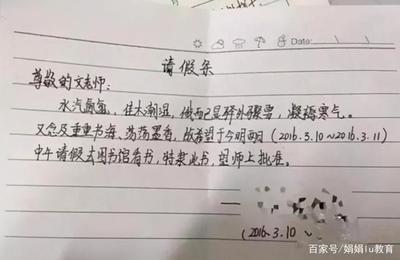 Date:
请假条
尊敬的文老师：
水汽氤氲，佳木潮湿，俄而已是驿外骤雪，凝稀寒气。
又念及重重书海、荡荡墨香，故希望于今明两日（2016.3.10～2016.3.11）
中午请假去图书馆看书，特禀此书，望师上批准。
（2016.3.10 ～
百家号/娟娟lu教育